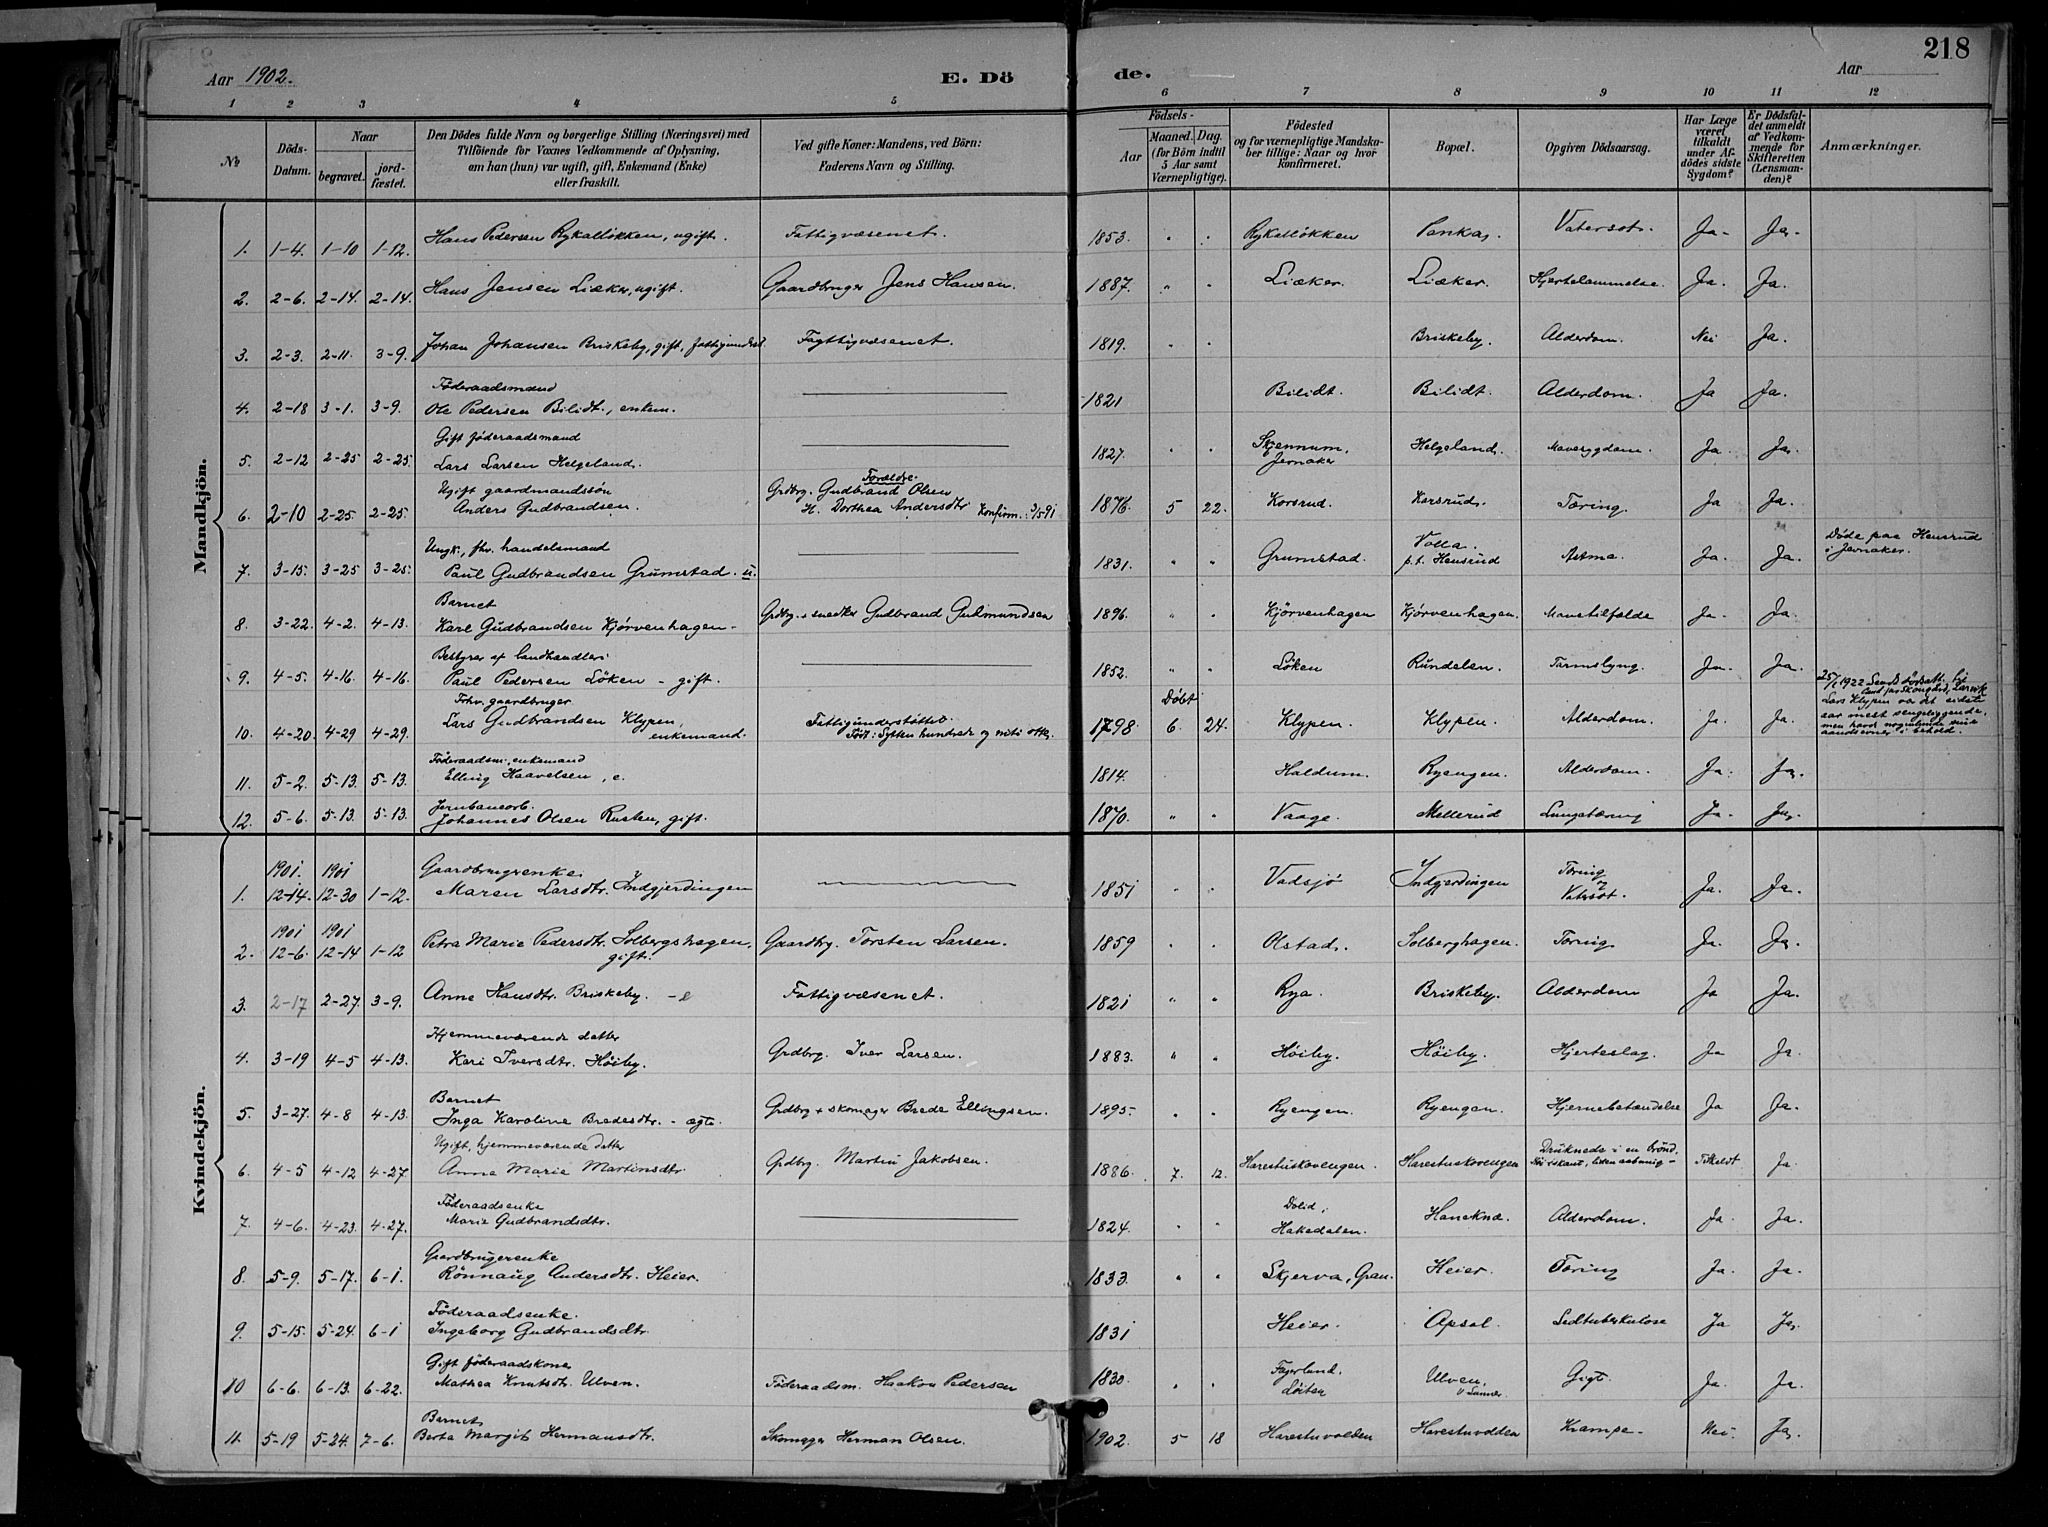 218
Aar 1902.
E. Dö
de.
Aar
1 2 3 4 5 6 7 8 9 10 11 12
No
Döds-Datum.
Naar
begravet.
jord-fæstet.
Den Dödes fulde Navn og borgerlige Stilling (Næringsvei) med
Tilföiende for Voxnes Vedkommende af Oplysning,
om han (hun) var ugift, gift, Enkemand (Enke)
eller fraskilt.
Ved gifte Koner: Mandens, ved Börn:
Faderens Navn og Stilling.
Födsels-
Aar
Maaned. Dag.
(for Börn indtil
5 Aar samt
Værnepligtige).
Födested
og for værnepligtige Mandska-
ber tillige: Naar og hvor
konfirmeret.
Bopæl.
Opgiven Dödsaarsag.
Har Læge
været
tilkaldt
under Af-
dödes sidste
Sygdom?
Er Dödsfal-
det anmeldt
af Vedkom-
mende for
Skifteretten
(Lensman-
den)?
Anmærkninger.
Mandkjön.
1. 1-4. 1-10 1-12. Hans Pedersen Rykalløkken, ugift. Fattigvæsenet. 1853. " " Rykalløkken Pankas Vatersot. Ja. Ja.
2. 2-6. 2-14. 2-14. Hans Jensen Liæker, ugift. Gaardbruger Jens Hansen. 1887. " " Liæker. Liæker. Hjertelammelse. Ja. Ja.
3. 2-3. 2-11. 3-9. Johan Johansen Briskeby, gift, fattigunderst. Fagttigvæsenet. 1819. " " Briskeby. Alderdom. Nei Ja.
Føderaadsmand
4. 2-18 3-1. 3-9. Ole Pedersen Bilidt., enkem. 1821 Bilidt. Bilidt. Alderdom. Ja Ja.
Gift føderaadsmand
5. 2-12 2-25 2-25. Lars Larsen Helgeland. 1827. " " Skjennum, Jevnaker Helgeland. Mavesygdom. Ja. Ja.
Ugift gaardmandssøn Forældre.
6. 2-10 2-25. 2-25. Anders Gudbrandsen. Grdbrg. Gudbrand Olsen
H. Dorthea Andersdtr Konfirm. 3/5 91 1876. 5 22. Korsrud. Korsrud. Tæring. Ja Ja.
Ungk., fhv. handelsmand
7. 3-15. 3-25 3-25. Paul Gudbrandsen Grumstad. u. 1831. " " Grumstad. Volla. p.t. Hensrud Astma. Ja. Ja. Døde paa Hensrud
i Jevnaker.
Barnet
8 3-22. 4-2. 4-13. Karl Gudbrandsen Kjørvenhagen - Grdbrg. + snedker Gudbrand Gulmundsen 1896. " " Kjörvenhagen Kjørvenhagen. Mavetilfælde Ja. Ja.
Bestyrer af landhandleri
9. 4-5. 4-16. 4-16. Paul Pedersen Løken - gift. 1852. " " Løken Rundelen. Tarmslyng. Ja. Ja.
Fhv. gaardbruger Døbt 25/1 1922 Sendt dødsatt.
10. 4-20 4-29 4-29. Lars Gudbrandsen Klypen, enkemand. Fattigunderstøttet.
Født: Sytten hundrede og niti otte. 1798. 6. 24. Klypen. Klypen. Alderdom. Ja. Ja. Lars Klypen var det sidste
aar mest sengeliggende,
men havde nogenlunde sine
aandsevner i behold.
Føderaadsm., enkemand
11. 5-2. 5-13. 5-13. Elling Haavelsen, e. 1814. Haldum. Ryengen. Alderdom. Ja. Ja.
Jernbanearb.
12. 5-6. 5-13. 5-13. Johannes Olsen Rusten, gift. 1870. " " Vaage. Mellerud Lungetæring Ja. Ja.
Kvindekjön.
1901. 1901 Gaardbrugrenke.
1. 12-14. 12-30 1-12. Maren Larsdtr. Indgjerdingen 1851 " " Vadsjø Indgjerdingen Tæring og Vatersot. Ja. Ja.
1901 1901
2. 12-6. 12-14 1-12 Petra Marie Pedersdtr. Solbergshagen, gift. Gaardbrg. Torsten Larsen. 1859 " " Olstad. Solberghagen. Tæring. Ja. Ja.
3. 2-17 2-27. 3-9. Anne Hansdtr. Briskeby. - e Fattigvæsenet. 1821 " " Rya. Briskeby. Alderdom Ja Ja.
Hjemmeværende datter
4. 3-19 4-5 4-13. Kari Iversdtr. Høiby. Grdbrg. Iver Larsen. 1883. " " Høiby. Høiby. Hjerteslag. Ja Ja.
Barnet
5. 3-27. 4-8 4-13. Inga Karoline Bredesdtr. - ægte. Grdbrg + skomager Brede Ellingsen. 1895. " " Ryengen. Ryengen. Hjernebetændelse Ja Ja.
Ugift, hjemmeværende datter
6. 4-5 4-12 4-27. Anna Marie Martinsdtr. Grdbrg. Martin Jakobsen. 1886. 7. 12. Harestuskovengen. Harestuskovengen Druknede i en brønd. Ja
Føderaadsenke
7. 4-6. 4-23. 4-27. Marie Gudbrandsdtr. 1824. " " Dølid, Hakedalen. Haneknæ. Alderdom. Ja. Ja.
Gaardbrugerenke
8. 5-9. 5-17. 6-1. Rönnaug Andersdtr. Heier. 1833. " " Skjerva, Gran. Heier. Tæring Ja. Ja.
Føderaadsenke.
9. 5-15. 5-24. 6-1 Ingeborg Gudbrandsdtr. 1831 Heier. Apsol. Ledtuberkulose Ja Ja.
Gift føderaadskone
10 6-6. 6-13. 6-22. Mathea Knutsdtr. Ulven. Føderaadsm. Haakon Pedersen 1830. " " Fagerland. Løiten Ulven, v. Sunner Gigt. Ja. Ja.
Barnet
11. 5-19 5-24. 7-6. Berta Margit Hermansdtr. Skomager Herman Olsen. 1902. 5 18 Harestuvolden Harestuvolden Krampe. Nei. Ja.